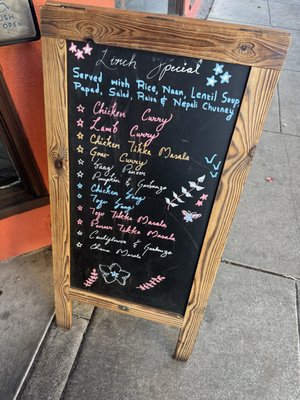 PUSH
OPEN
Lunch Special
Served with Rice, Naan, Lentil Soup
Papad, Salad, Raita & Nepali Chutney
Chicken Curry
Lamb Curry
Chicken Tikka Masala
Goat Curry
Saag Paneer
Pumpkin &
Chicken Saag
Tofu Saag
Tofu Tikka Masala
Paneer Tikka Masala
Cauliflower &
Chana Masala